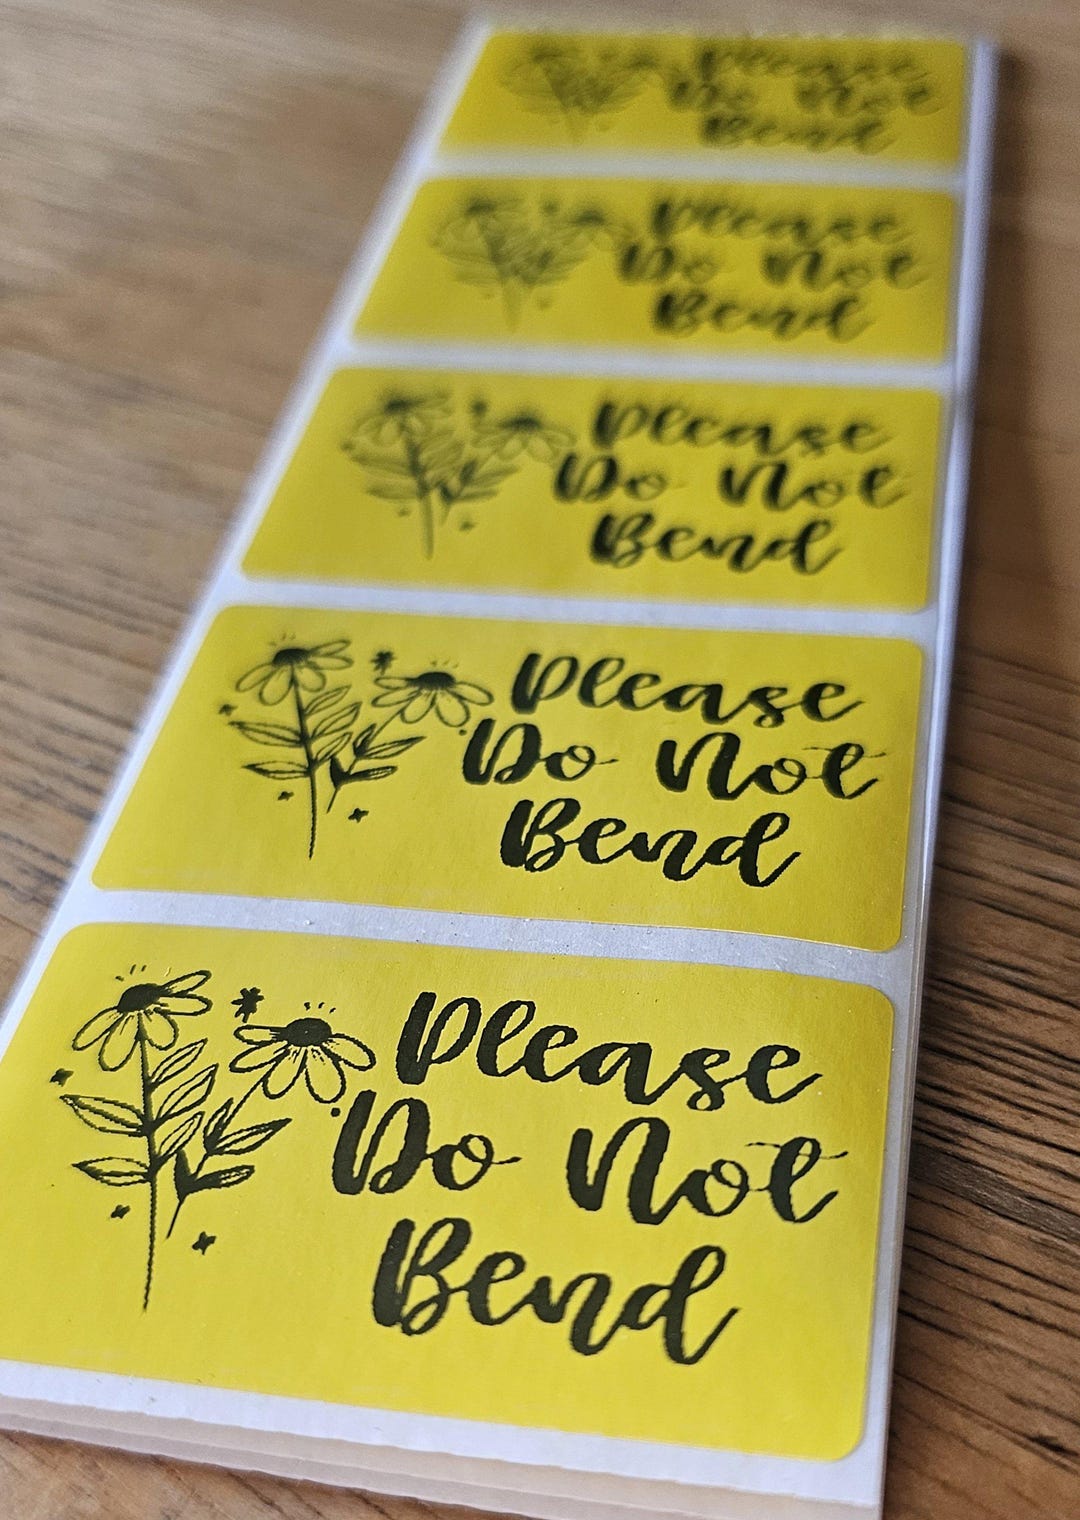 Please
Do Not
Bend
Please
Do Not
Bend
Please
Do Not
Bend
Please
Do Not
Bend
Please
Do Not
Bend